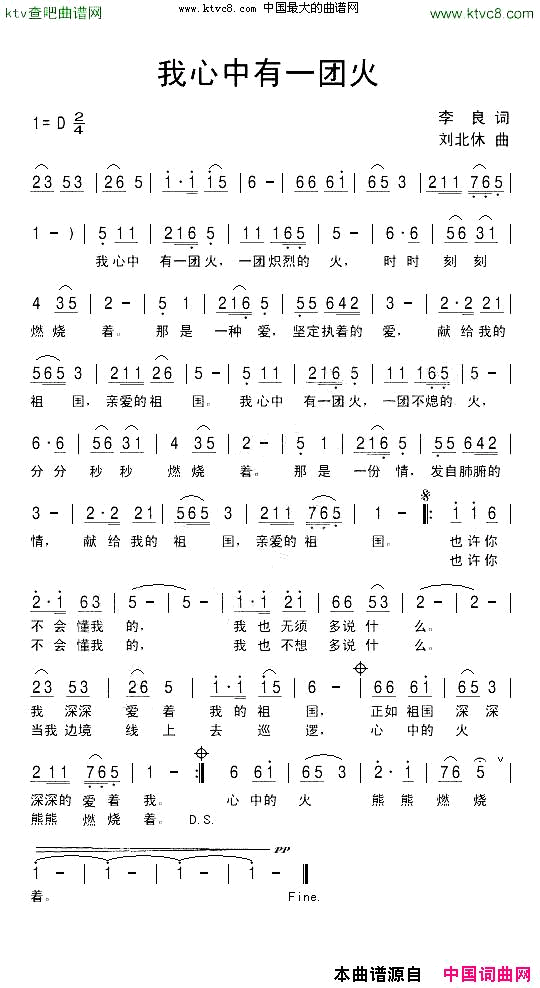 ktv查吧曲谱网 www.ktvc8.com 中国最大的曲谱网 www.ktvc8.com
我心中有一团火
1=D 2/4
李 良 词
刘北休 曲
23 53 | 26 5 | i·i i5 | 6 - | 66 6i | 65 3 | 211 765 |
1 - ) | 5 11 | 216 5 | 11 165 | 5 - | 6·6 | 56 31 |
我心中 有一团火, 一团炽烈的 火, 时时 刻刻
4 35 | 2 - | 5 1 | 216 5 | 55 642 | 3 - | 2·2 21 |
燃烧 着。 那是 一种 爱, 坚定执着的 爱, 献给我的
565 3 | 211 26 | 5 - | 5 11 | 216 5 | 11 165 | 5 - |
祖 国, 亲爱的祖 国。 我心中 有一团火, 一团不熄的 火,
6·6 | 56 31 | 4 35 | 2 - | 5 1 | 216 5 | 55 642 |
分分 秒秒 燃烧 着。 那是 一份 情, 发自肺腑的
3 - | 2·2 21 | 565 3 | 211 765 | 1 - |: i i6 |
情, 献给我的 祖 国, 亲爱的祖 国。 也许你
也许你
2·i 63 | 5 - | 5 - | i·i 2i | 66 53 | 2 - | 2 - |
不会懂我 的, 我也无须 多说什 么。
不会懂我 的, 我也不想 多说什 么。
23 53 | 26 5 | i·i i5 | 6 - | 66 6i | 65 3 |
我 深深 爱着 我的祖 国, 正如祖国 深深
当我边境 线上 去 巡 逻, 心 中的 火
211 765 | 1 - :| 6 6i | 65 3 | 2·i | 76 5 ∨ |
深深的 爱着 我。 心中的 火 熊熊 燃烧
熊熊 燃烧 着。 D.S.
pp
i - | i - | i - | i - ‖
着。 Fine.
本曲谱源自 中国词曲网